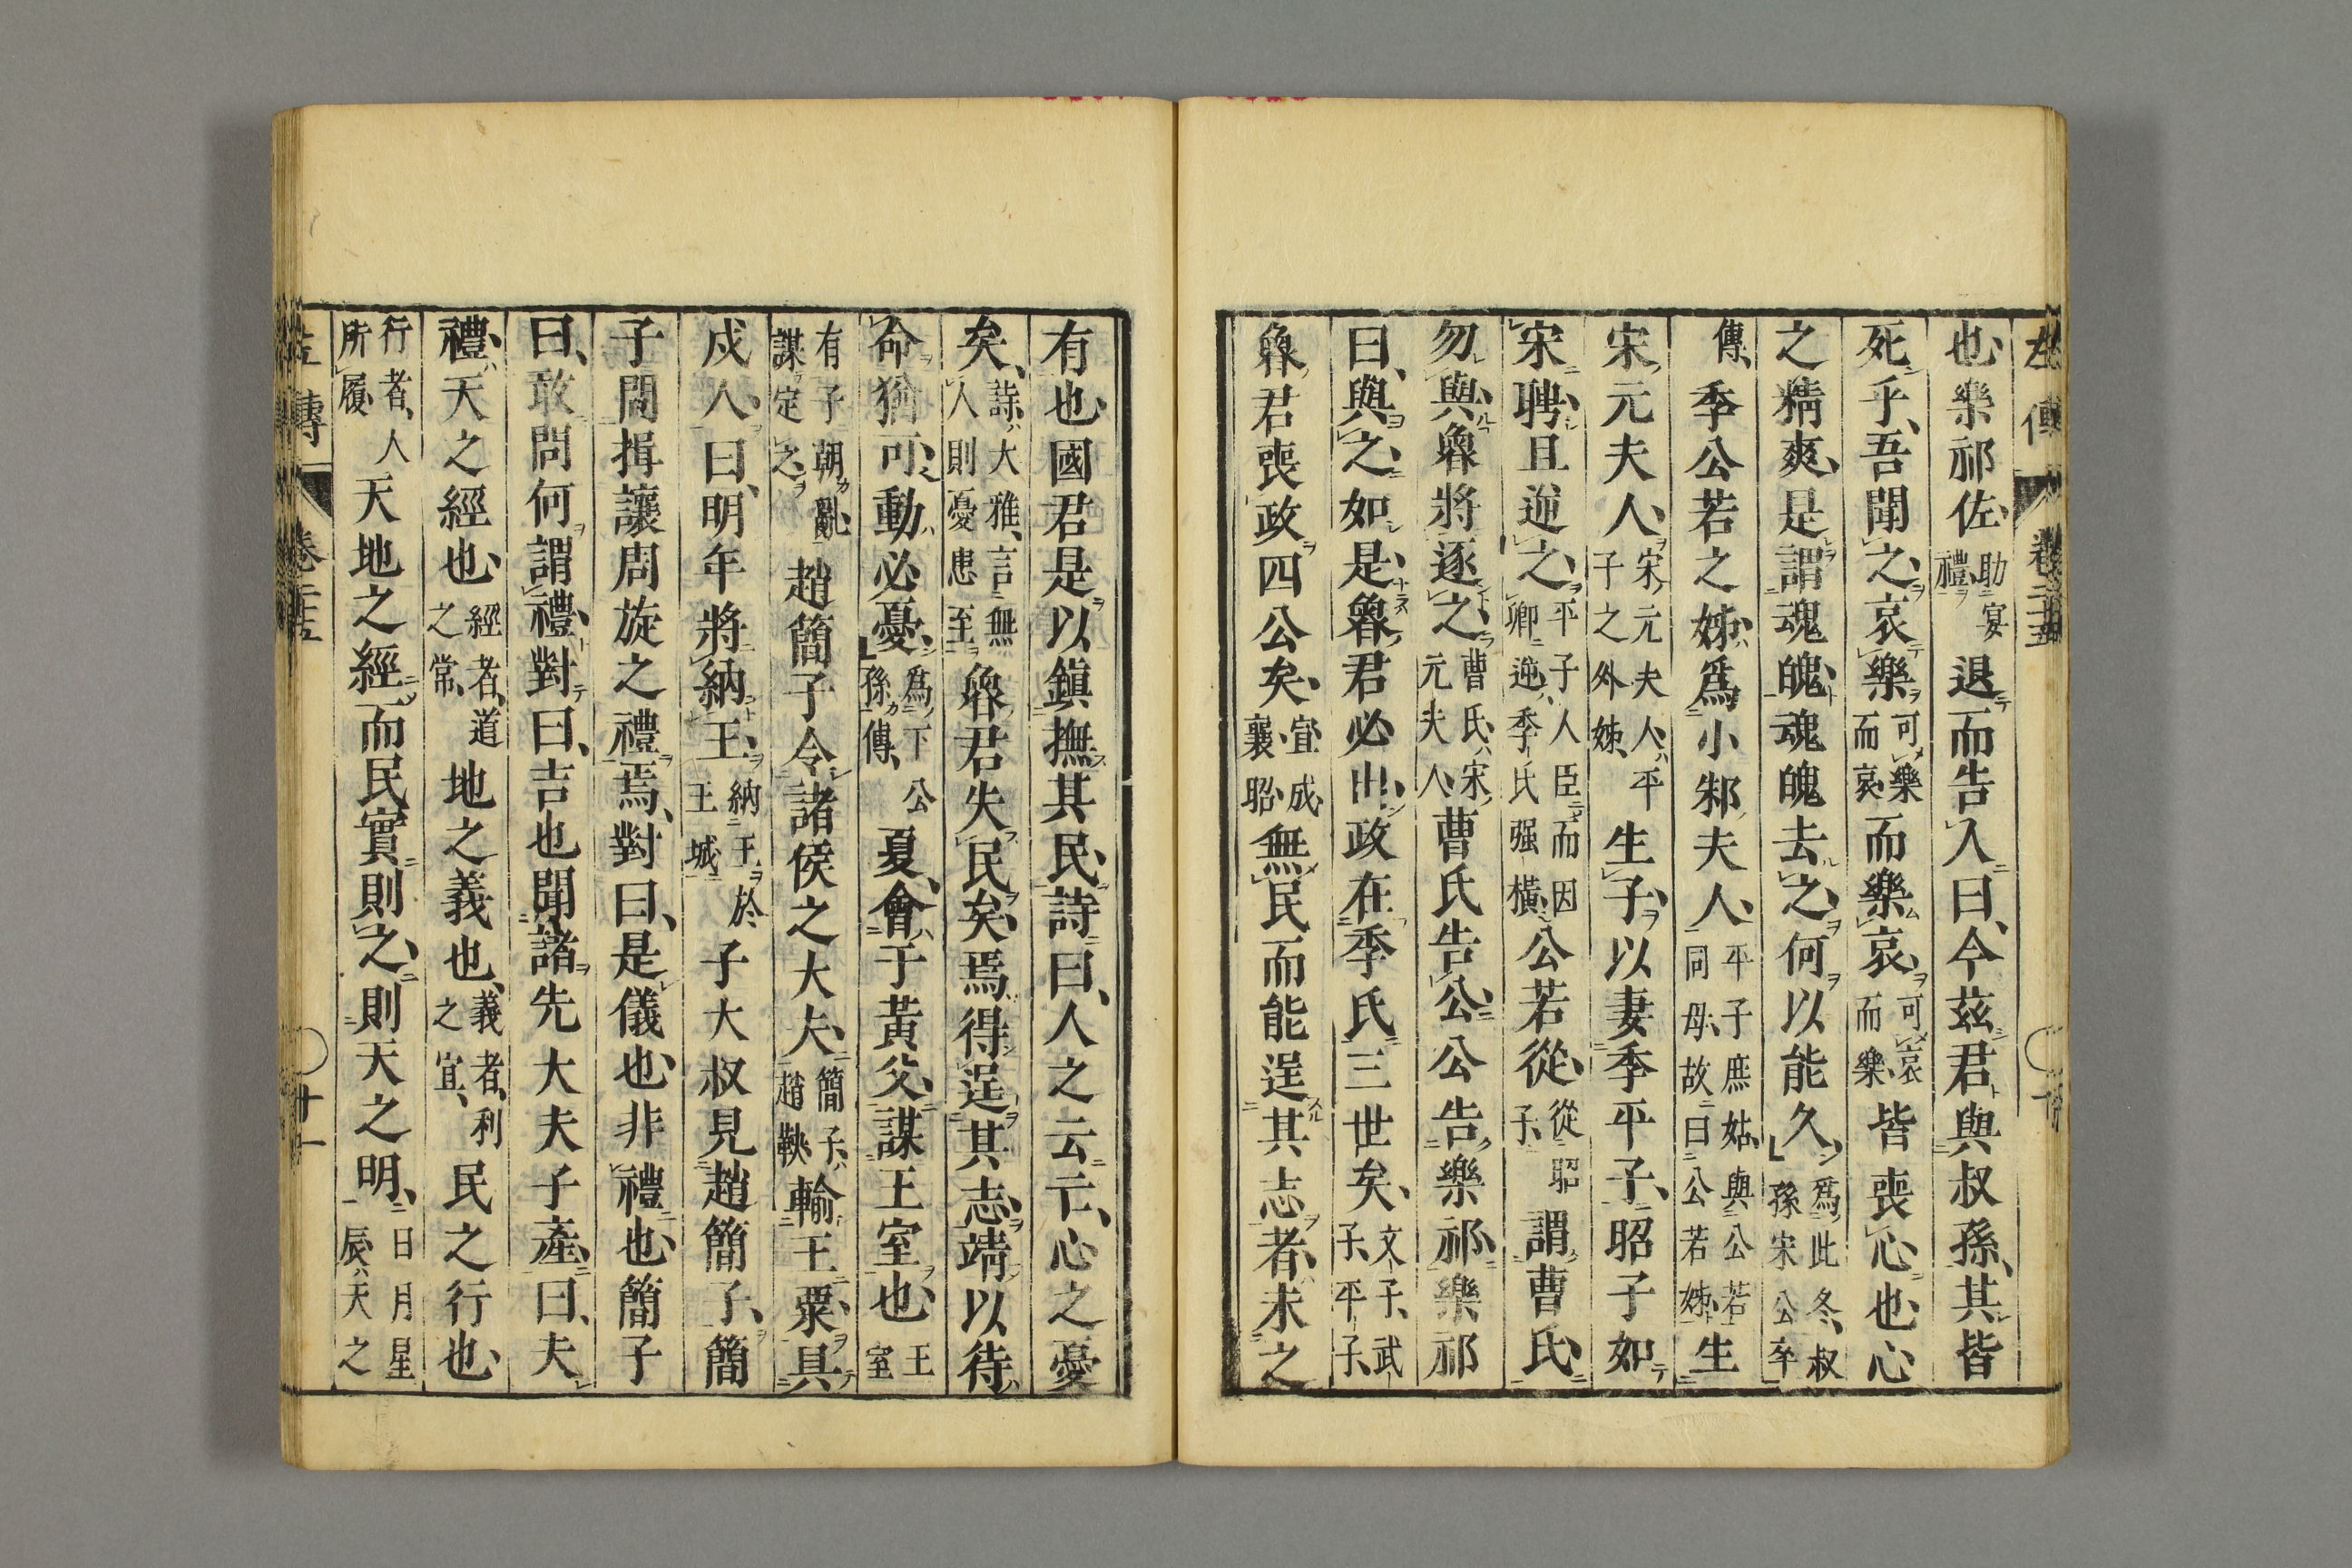 左傳 卷二十五
也樂祁佐助宴禮退而告人曰今茲君與叔孫其皆
死乎吾聞之哀樂可樂而哀而樂哀可哀而樂皆喪心也心
之精爽是謂魂魄魂魄去之何以能久爲此冬叔孫宋公卒
傳季公若之姊爲小邾夫人平子庶姑與公若同母故曰公若姊生
宋元夫人宋元夫人平子之外姊生子以妻季平子昭子如
宋聘且逆之平子人臣而因卿逆季氏强橫公若從從昭子謂曹氏
勿與魯將逐之曹氏宋元夫人曹氏告公公告樂祁樂祁
曰與之如是魯君必出政在季氏三世矣文子武子平子
魯君喪政四公矣宣成襄昭無民而能逞其志者未之
有也國君是以鎭撫其民詩曰人之云亡心之憂
矣詩大雅言無人則憂患至魯君失民矣焉得逞其志靖以待
命猶可動必憂爲下公孫傳夏會于黃父謀王室也王室
有子朝亂謀定之趙簡子令諸侯之大夫簡子趙鞅輸王粟具
戍人曰明年將納王納王於王城子大叔見趙簡子簡
子問揖讓周旋之禮焉對曰是儀也非禮也簡子
曰敢問何謂禮對曰吉也聞諸先大夫子產曰夫
禮天之經也經者道之常地之義也義者利之宜民之行也
行者人所履天地之經而民實則之則天之明日月星辰天之
左傳 卷二十五 廿一